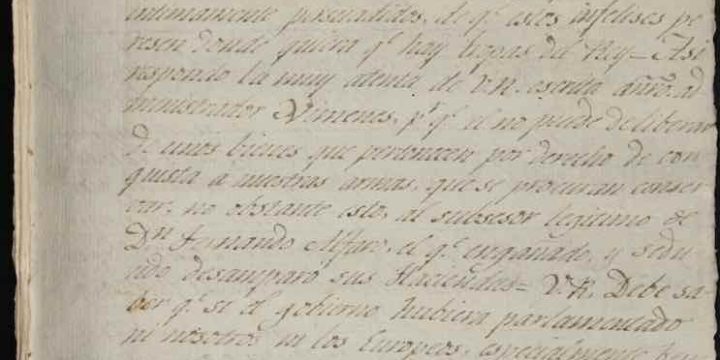 intimamente persuadidos, de q.e estos infelises pe
resen donde quiera q.e hay tropas del Rey = Asi
respondo la muy atenta de V.R. escrita a ntro. ad
ministrador Ximenes, p.r q.e el no puede deliberar
de unos bienes que pertenecen por derecho de con
quista a nuestras armas, que se procuran conser
var, no obstante esto, al subsesor legitimo de
D.n Fernando Alfaro, el q.e engañado, y sedu
cido desamparó sus Haciendas = V.R. Debe sa
ber q.e si el gobierno hubiera parlamentado
ni nosotros ni los Europeos, especialmente